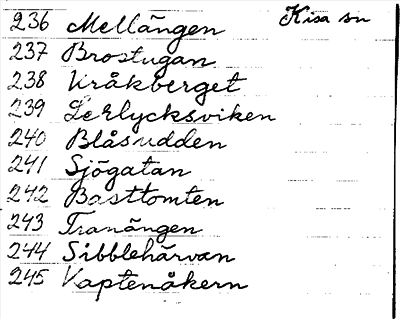 236 Mellängen Kisa sn
237 Brostugan
238 Kråkberget
239 Lerlycksviken
240 Blåsudden
241 Sjögatan
242 Basttomten
243 Tranängen
244 Sibblehärvan
245 Kaptenåkern